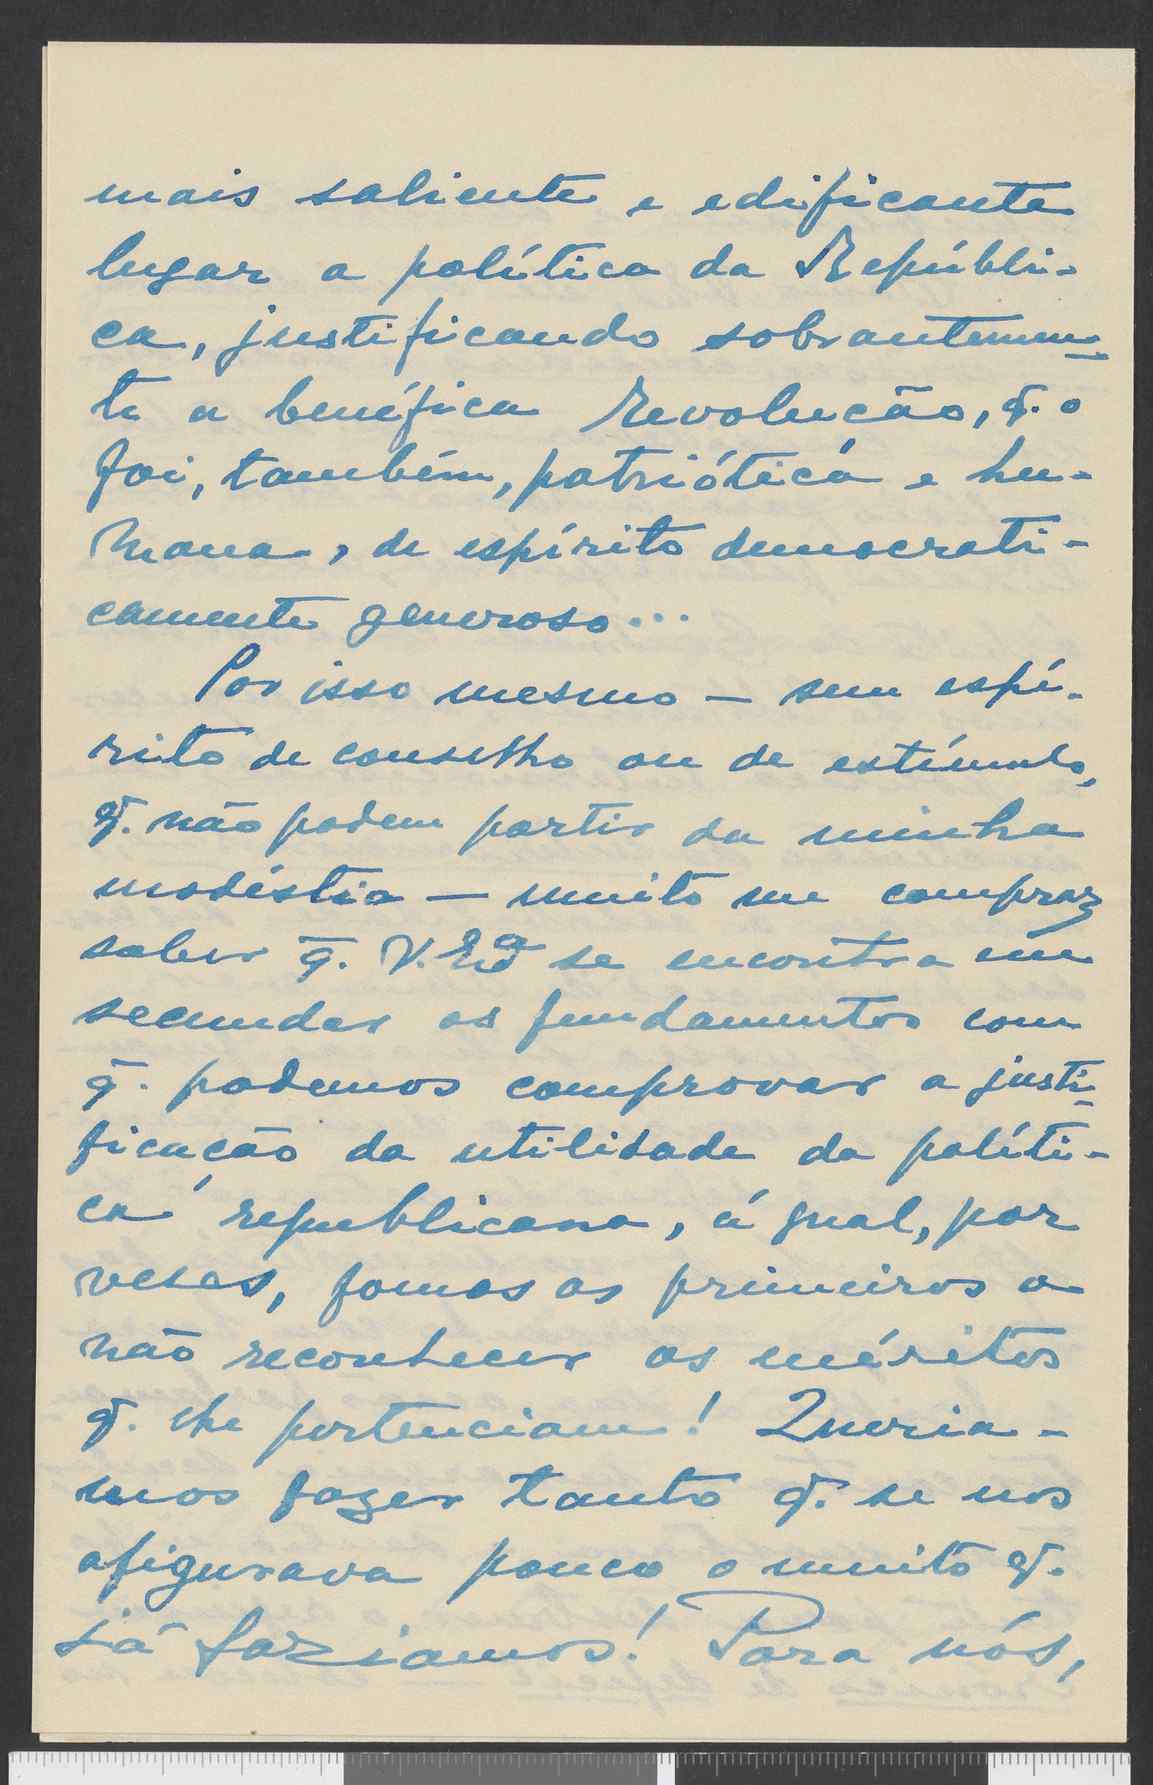 mais saliente e edificante
lugar a política da Repúbli-
ca, justificando sobrantemen-
te a benéfica Revolução, q̄. o
foi, também, patriótica e hu-
mana, de espírito democrati-
camente generoso...
Por isso mesmo — sem espí-
rito de conselho ou de estímulo,
q̄. não podem partir da minha
modéstia — muito me compraz
saber q̄. V. Exª se encontra em
secundar os fundamentos com
q̄. podemos comprovar a justi-
ficação da utilidade da políti-
ca republicana, á qual, por
vezes, fomos os primeiros a
não reconhecer os méritos
q̄. lhe pertenciam! Queria-
mos fazer tanto q̄. se nos
afigurava pouco o muito q̄.
já faziamos! Para nós,